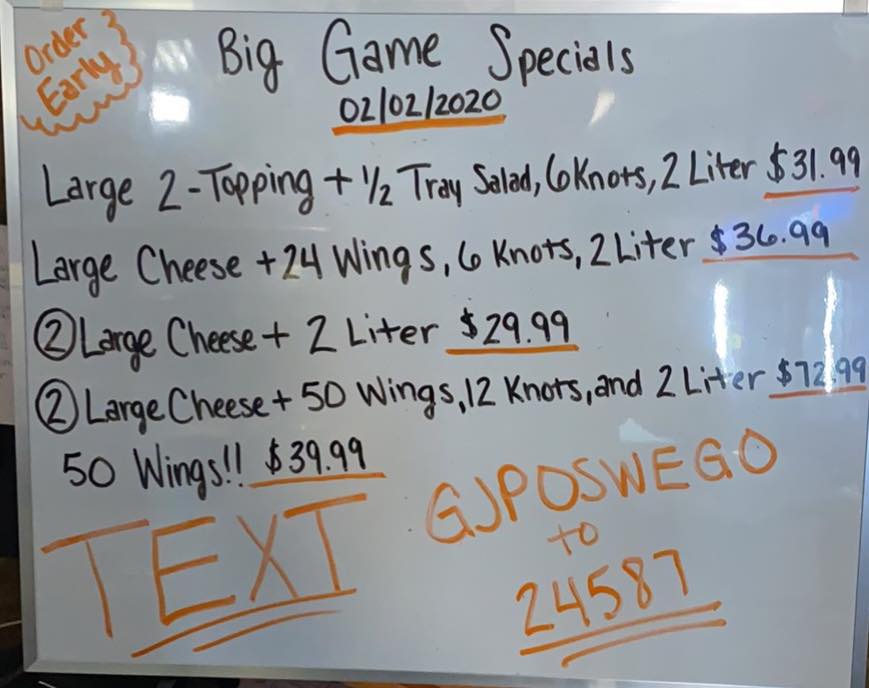 Order Early
Big Game Specials
02/02/2020
Large 2-Topping + 1/2 Tray Salad, 6 Knots, 2 Liter $31.99
Large Cheese + 24 Wings, 6 Knots, 2 Liter $36.99
② Large Cheese + 2 Liter $29.99
② Large Cheese + 50 Wings, 12 Knots, and 2 Liter $72.99
50 Wings!! $39.99
TEXT GJPOSWEGO
to
24587